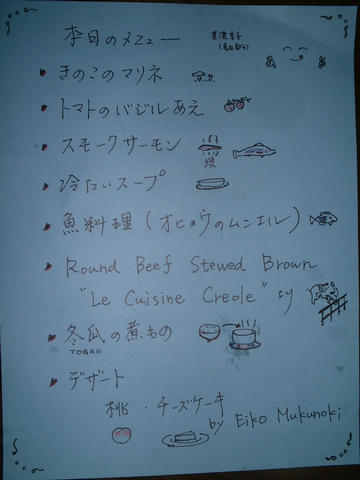 本日のメニュー
きのこのマリネ
トマトのバジルあえ
スモークサーモン
冷たいスープ
魚料理 (オヒョウのムニエル)
Round Beef Stewed Brown
"Le Cuisine Creole"
冬瓜の煮もの
TOGAN
デザート
桃・チーズケーキ
by Eiko Mukunoki